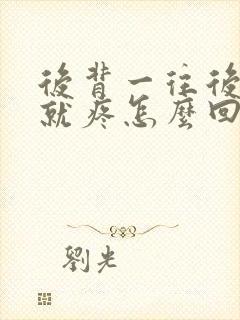 後背一往後
就疼怎麼回
劉光